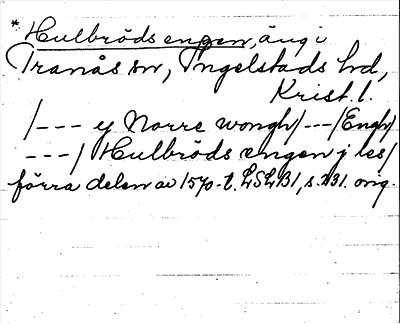 * Hulbröds engen, äng i
Tranås sn, Ingelstads hd,
Krist. l.
/--- y Norre wongh/---/Engh/
---/ Hulbröds engen j les/
förra delen av 1570-t. LSLB1, s. 231. orig.